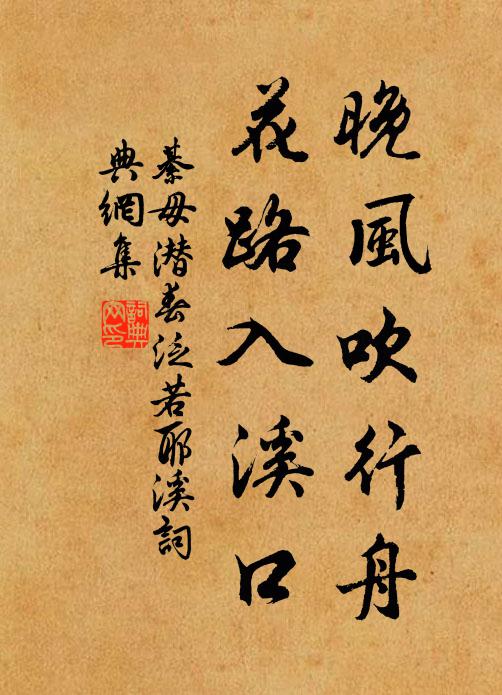 晚風吹行舟
花路入溪口
綦毋潜春泛若耶溪詞
典網集
詞典網印